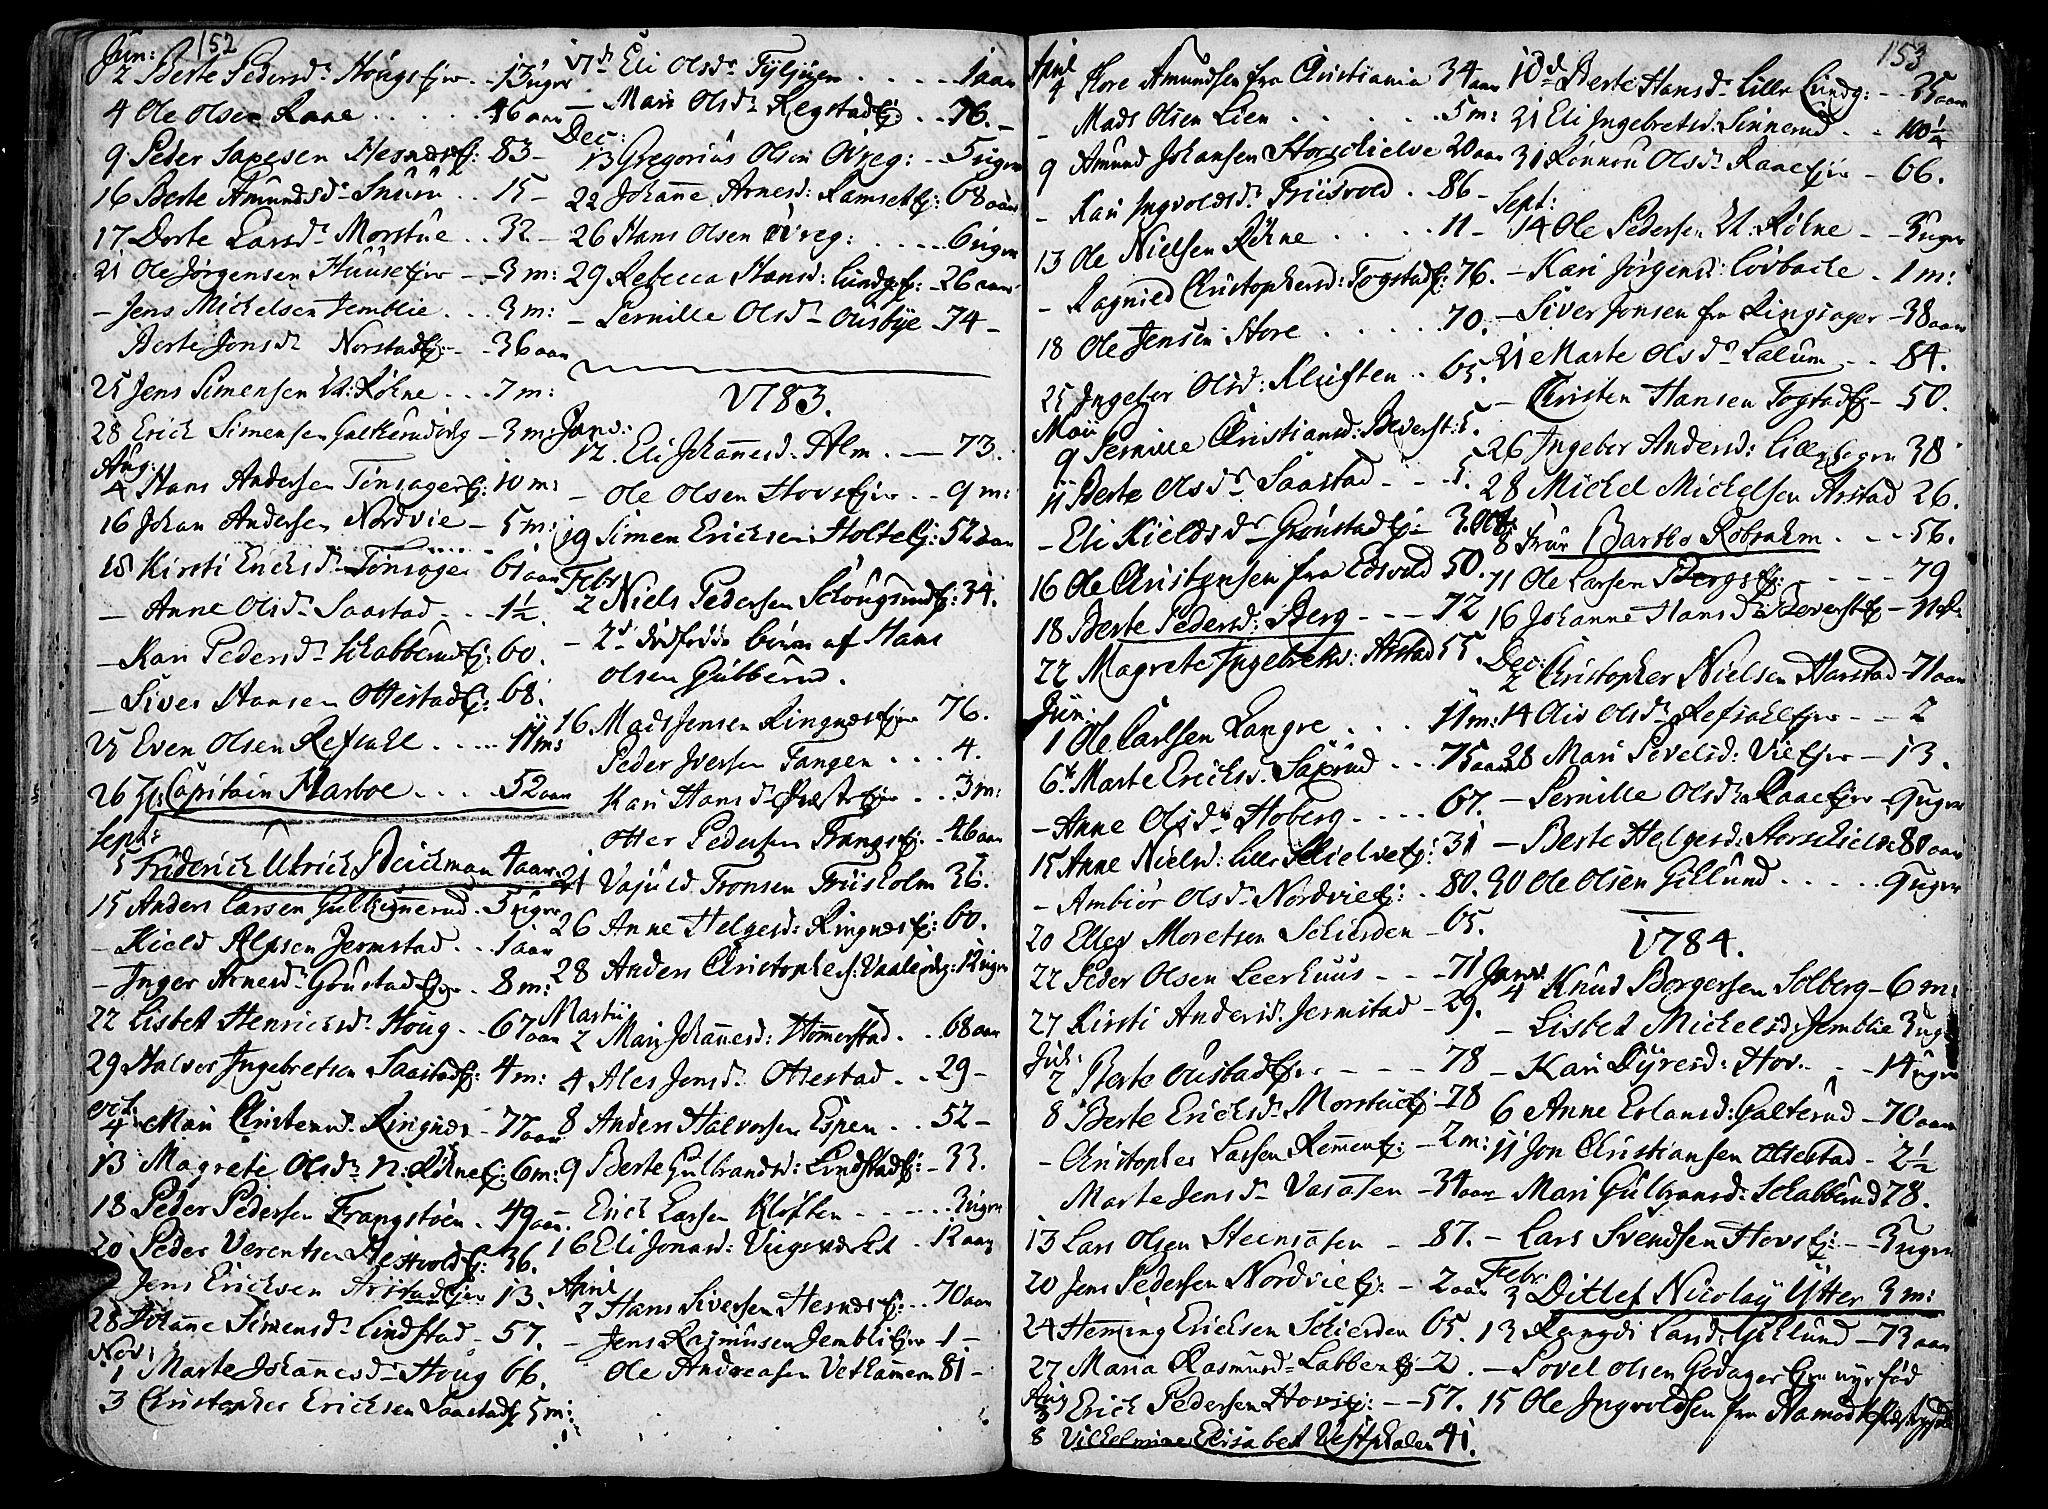 152
Jun:
2 Berte Pedersd: Hougs Ejer - 13 uger
4 Ole Olsen Raae ..... 46 aar
9 Peder Hesnes Ej: 83 -
16 Berte Amundsd: Snuru .. 15 -
17 Dorte Larsd: Morstue .. 32 -
21 Ole Jørgensen Huuse Ejer - 3 m:
- Jens Michelsen Jemblie ... 3 m:
Berte Jonsd: Norstad Ej: - 36 aar
25 Jens Simensen Røhne ... 7 m:
28 Erich Simensen - 3 m:
Aug:
4 Hans Andersen Tønsager Ej: 10 m:
16 Johan Andersen Nordvie - 5 m:
18 Kirsti Erichsd: Tønsager 61 aar
- Anne Olsd: Saastad .. 1½.
- Kari Pedersd: Schabberud Ej: 60.
- Siver Hansen Ottestad Ej: 68.
25 Even Olsen Refsahl .... 11 m:
26 Capitain Harboe .... 52 aar
Sept:
5 Friderich Ulrich Deichman 4 aar
15 Anders Larsen - 5 uger
- Kield Jermstad .. 1 aar
- Inger Arnesd: Gaustad Ejer .. 8 m:
22 Lisbet Henrichsd: Houg .. 67 aar
29 Halvor Ingebretsen Saastad Ej: 4 m:
Oct:
4 Mari Christensd: Ringnes - 77 aar
13 Magrete Olsd: N: Røhne Ej: 6 m:
18 Peder Pedersen Frangstøen . 49 aar.
20 Peder Ej: 36.
Jens Erichsen Arstad Ejer 13.
28 Johanne Simensd: Lindstad - 57.
Nov:
1 Marte Johannesd: Houg 66.
3 Christopher Erichsen Saastad Ej 5 m:
17d Eli Olsd: .... 1 aar
- Mari Olsd: Regstad Ej: .. 76. -
Dec:
13 Gregorius Olsen Øvreg: - 5 uger
22 Johanne Arnesd: Ramset Ej: 68 aar
26 Hans Olsen Øvreg: .... 6 uger
29 Rebecca Hansd: Lundg Ej: - 26 aar
- Pernille Olsd: Ousbye 74 -
1783.
Janv:
12. Eli Johannesd: Alm. - 73.
- Ole Olsen Hovs Ejer .. 9 m:
19 Simen Erichsen Holte Ej: 52 aar
Febr
2 Niels Pedersen Schougrud Ej: 34.
- 2d dødfødde børn af Hans
Olsen Gubberud.
16 Mads Jensen Ringnes Ejer 76.
Peder Iversen Tangen ... 4.
Kari Hansd: Ejer .. 3 m:
Otter Pedersen Frangs Ej: - 46 aar
21 Tronsen Friisholm 36.
26 Anne Helgesd: Ringnes Ej: 60.
28 Anders Christophers: 12 uger
Martii
2 Mari Johannesd: Hommerstad .. 68 aar
4 Ales Jensd: Ottestad .. 29 -
8 Anders Halvorsen Espen .. 52 -
9 Berte Gulbrandsd: Lindstad Ej: - 33.
Erich Larsen Kløften ...... 3 uger
16 Eli Jonasd: . 12 aar
April
2 Hans Siversen Hesnes Ej: .. 70 aar
- Jens Rasmusen Jembli Ejer - 1 -
Ole Andreasen Vethammern 81 -
153
April
4 Tore Amundsen fra Christiania 34 aar
- Mads Olsen Lien ....... 5 m:
9 Amund Johansen Storschielve 20 aar
- Kari Ingvoldsd: Friisvold . 86 -
13 Ole Nielsen Røhne ..... 11 -
- Ragnild Christophersd: Togstad Ej: 76.
18 Ole Jensen Store ..... 70.
25 Ingebor Olsd: Kluften .. 65.
Maii
9 Pernille Christiansd: Beverst: 5.
11 Berte Olsd: Saastad - - 5.
- Eli Kieldsd: Grønstad Ej: - 3.
16 Ole Christensen fra Edsvold 50.
18 Berte Pedersd: Berg - - - 72
22 Magrete Ingebretsd: Arstad 55.
Jun:
1 Ole Carlsen Langre .... 11 m:
6 Marte Erichsd: Saxrud ... 75 aar
- Anne Olsd: Hoberg .... 67.
15 Anne Nielsd: Lille Schielve Ej: 31
- Ambiør Olsd: Nordvie Ej: . 80.
20 Ellev Moretsen Schierden - 65.
22 Peder Olsen Leerhuus - - - 71
27 Kirsti Andersd: Jermstad - 29.
Jul:
2 Berte Oustad Ejer - - - 78
8 Berte Erichsd: Morstue Ej - 78
- Christopher Larsen Remmen Ej: - 2 m:
Marte Jensd: Vasaasen - 34 aar
13 Lars Olsen Steensaasen - 87.
20 Jens Pedersen Nordvie Ej: - 2 aar
24 Heming Erichsen Schierden 65.
27 Maria Rasmusd: Labben Ej - 2.
Aug
3 Erich Pedersen Hovs Ej: - - 57.
8 Vilhelmine Elisabet Vestphalen 41.
10d Berte Hansd: Lille Lundg: - - 35 aar
21 Eli Ingebretsd: Sinnerud .. 10½
31 Rønnou Olsd: Raae Ejer - 66.
Sept:
14 Ole Pedersen Røhne - - 3 uger
- Kari Jørgensd: Løvbacke . 1 m:
- Siver Jonsen fra Ringsager - 38 aar
21 Marte Olsd: Lalum - - 84.
- Christen Hansen Togstad Ej - 50.
26 Ingebor Andersd: 38
28 Michel Michelsen Arstad 26.
Oct:
8 Frue Barthe Robsahm . - - 56.
11 Ole Larsen Bergs Ej: - - - 79
16 Johanne Hansd: Beverst Ej -
Dec:
2 Christopher Nielsen Harstad - 71 aar
14 Oliv Olsd: Refsahl Ejer - - 2
28 Mari Povelsd: Vie Ejer - 13.
- Pernille Olsd: Raae Ejer - 9 uger
- Berte Helgesd: Storschielve 80 aar
30 Ole Olsen Gillund ..... 9 uger
1784.
Janv:
4 Knud Borgersen Solberg - 6 m:
- Lisbet Michelsd: Jemblie 3 ug
- Kari Dyresd: Hov. - - 14 uger
6 Anne Erlansd: Galterud - 70 aar
11 Jon Christiansen Ottestad - 2½
- Mari Gulbransd: Schabberud 78.
- Lars Svendsen Hovs Ej: - 3 uger
Febr
3 Ditlef Nicolay Ytter 3 m:
13 Rangdi Larsd: Gillund - 73 aar
- Povel Olsen Godager Ejer nyefød
15 Ole Ingvoldsen fra